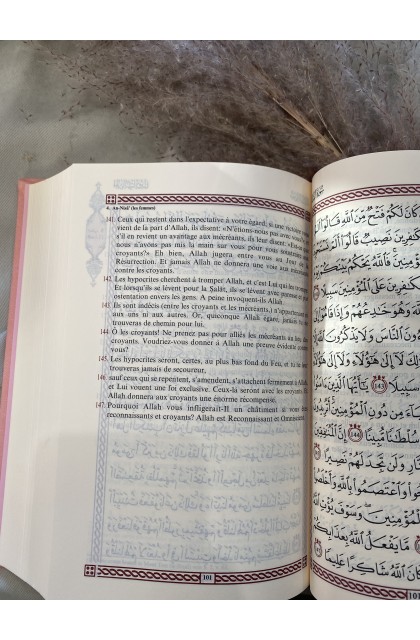 4. An-Nisâ' (les femmes)
141. Ceux qui restent dans l'expectative à votre égard, si une victoire vous
vient de la part d'Allah, ils disent: «N'étions-nous pas avec vous?»
s'il en revient un avantage aux mécréants, ils leur disent: «Est-ce que
nous n'avons pas mis la main sur vous pour vous soustraire aux
croyants?» Eh bien, Allah jugera entre vous au Jour de la
Résurrection. Et jamais Allah ne donnera une voie aux mécréants
contre les croyants.
142. Les hypocrites cherchent à tromper Allah, et c'est Lui qui les trompe
Et lorsqu'ils se lèvent pour la Salât, ils se lèvent avec paresse et par
ostentation envers les gens. A peine invoquent-ils Allah.
143. Ils sont indécis (entre les croyants et les mécréants,) n'appartenant ni
aux uns ni aux autres. Or, quiconque Allah égare, jamais tu ne
trouveras de chemin pour lui.
144. Ô les croyants! Ne prenez pas pour alliés les mécréants au lieu des
croyants. Voudriez-vous donner à Allah une preuve évidente contre
vous?
145. Les hypocrites seront, certes, au plus bas fond du Feu, et tu ne leur
trouveras jamais de secoureur,
146. sauf ceux qui se repentent, s'amendent, s'attachent fermement à Allah
et Lui vouent une foi exclusive. Ceux-là seront avec les croyants. Et
Allah donnera aux croyants une énorme récompense.
147. Pourquoi Allah vous infligerait-Il un châtiment si vous êtes
reconnaissants et croyants? Allah est Reconnaissant et Omniscient.
101
كَانَ لَكُمْ فَتْحٌ مِّنَ ٱللَّهِ قَالُوٓا۟
لِلْكَٰفِرِينَ نَصِيبٌ قَالُوٓا۟
ٱلْمُؤْمِنِينَ فَٱللَّهُ يَحْكُمُ بَيْنَكُمْ
لِلْكَٰفِرِينَ عَلَى ٱلْمُؤْمِنِينَ سَبِيلًا
ٱللَّهَ وَهُوَ خَٰدِعُهُمْ وَإِذَا قَامُوٓا۟
ٱلنَّاسَ وَلَا يَذْكُرُونَ
لَآ إِلَىٰ هَٰٓؤُلَآءِ وَلَآ إِلَىٰ
143 يَٰٓأَيُّهَا ٱلَّذِينَ
مِن دُونِ ٱلْمُؤْمِنِينَ
سُلْطَٰنًا مُّبِينًا 144 إِنَّ ٱلْمُنَٰفِقِينَ
وَلَن تَجِدَ لَهُمْ نَصِيرًا
وَٱعْتَصَمُوا۟ بِٱللَّهِ وَأَخْلَصُوا۟
ٱلْمُؤْمِنِينَ وَسَوْفَ يُؤْتِ
مَّا يَفْعَلُ ٱللَّهُ بِعَذَابِكُمْ
وَكَانَ ٱللَّهُ شَاكِرًا عَلِيمًا
101